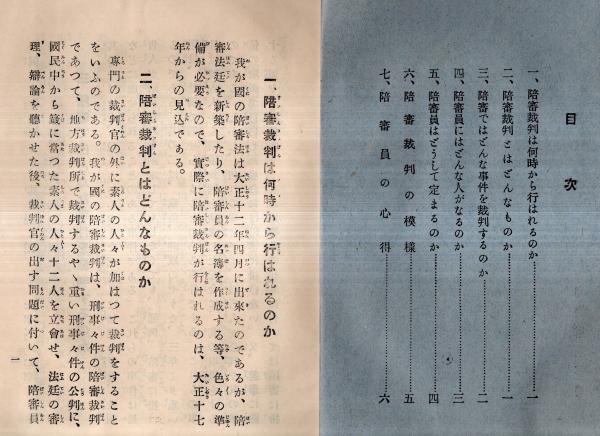 目次
一、陪審裁判は何時から行はれるのか……一
二、陪審裁判とはどんなものか……一
三、陪審ではどんな事件を裁判するのか……二
四、陪審員にはどんな人がなるのか……三
五、陪審員はどうして定まるのか……四
六、陪審裁判の模様……五
七、陪審員の心得……六
一、陪審裁判は何時から行はれるのか
我が國の陪審法は大正十二年四月に出來たのであるが、陪
審法廷を新築したり、陪審員の名簿を作成する等、色々の準
備が必要なので、實際に陪審裁判が行はれるのは、大正十七
年からの見込である。
二、陪審裁判とはどんなものか
專門の裁判官の外に素人の人々が加はつて裁判をすること
をいふのである。我が國の陪審裁判は、刑事々件の陪審裁判
であつて、地方裁判所で裁判するやゝ重い刑事々件の公判に、
國民中から籤に當つた素人の人々十二人を立會せ、法廷の審
理、辯論を聽かせた後、裁判官の出す問題に付いて、陪審員
一